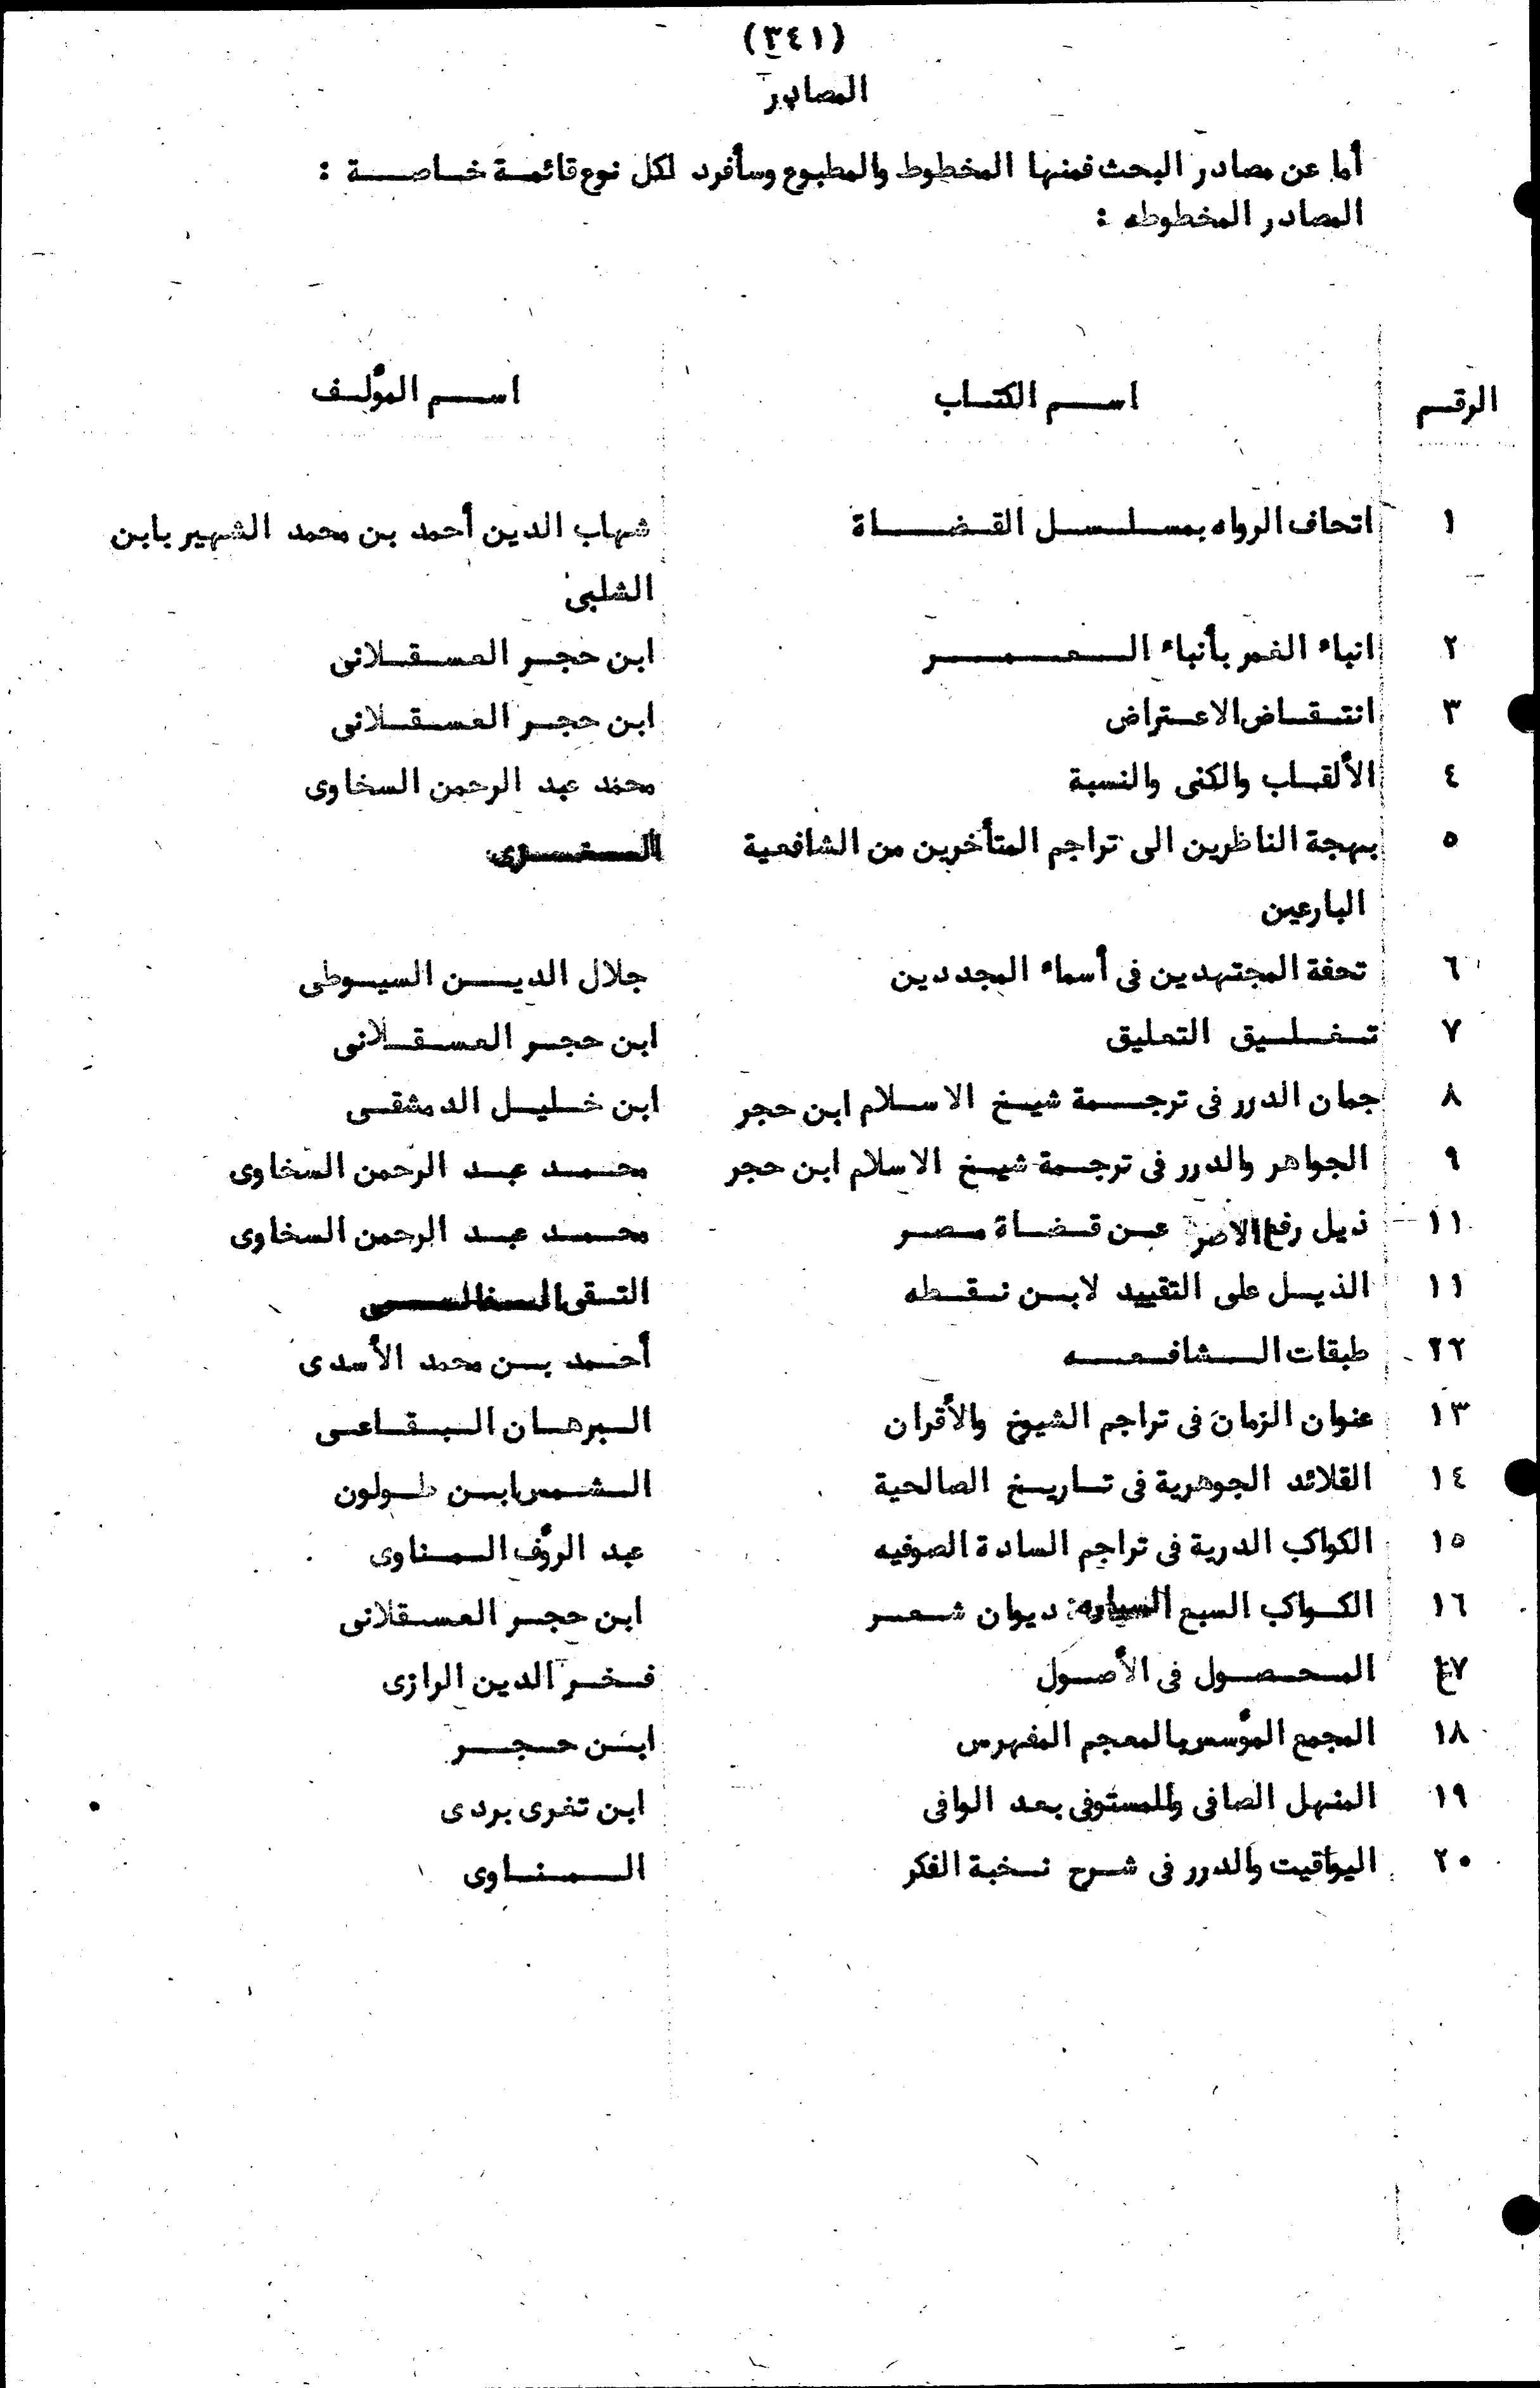 (٣٤١)
المصادر
أما عن مصادر البحث فمنها المخطوط والمطبوع وسأفرد لكل نوع قائمة خاصة :
المصادر المخطوطه :
الرقم اسم الكتاب اسم المؤلف
١ اتحاف الرواه بمسلسل القضاة شهاب الدين أحمد بن محمد الشهير بابن
الشلبى
٢ انباء الغمر بأنباء العمر ابن حجر العسقلانى
٣ انتقاض الاعتراض ابن حجر العسقلانى
٤ الألقاب والكنى والنسبة محمد عبد الرحمن السخاوى
٥ بهجة الناظرين الى تراجم المتأخرين من الشافعية
البارعين
٦ تحفة المجتهدين فى أسماء المجددين جلال الدين السيوطى
٧ تغليق التعليق ابن حجر العسقلانى
٨ جمان الدرر فى ترجمة شيخ الاسلام ابن حجر ابن خليل الدمشقى
٩ الجواهر والدرر فى ترجمة شيخ الاسلام ابن حجر محمد عبد الرحمن السخاوى
١١ ذيل رفع الاصر عن قضاة مصر محمد عبد الرحمن السخاوى
١١ الذيل على التقييد لابن نقطه التقى
٢٢ طبقات الشافعه أحمد بن محمد الأسدى
١٣ عنوان الزمان فى تراجم الشيوخ والأقران البرهان البقاعى
١٤ القلائد الجوهرية فى تاريخ الصالحية الشمس ابن طولون
١٥ الكواكب الدرية فى تراجم السادة الصوفيه عبد الرؤف المناوى
١٦ الكواكب السبع السياره: ديوان شعر ابن حجر العسقلانى
١٧ المحصول فى الأصول فخر الدين الرازى
١٨ المجمع المؤسس بالمعجم المفهرس ابن حجر
١٩ المنهل الصافى والمستوفى بعد الوافى ابن تغرى بردى
٢٠ اليواقيت والدرر فى شرح نخبة الفكر المناوى